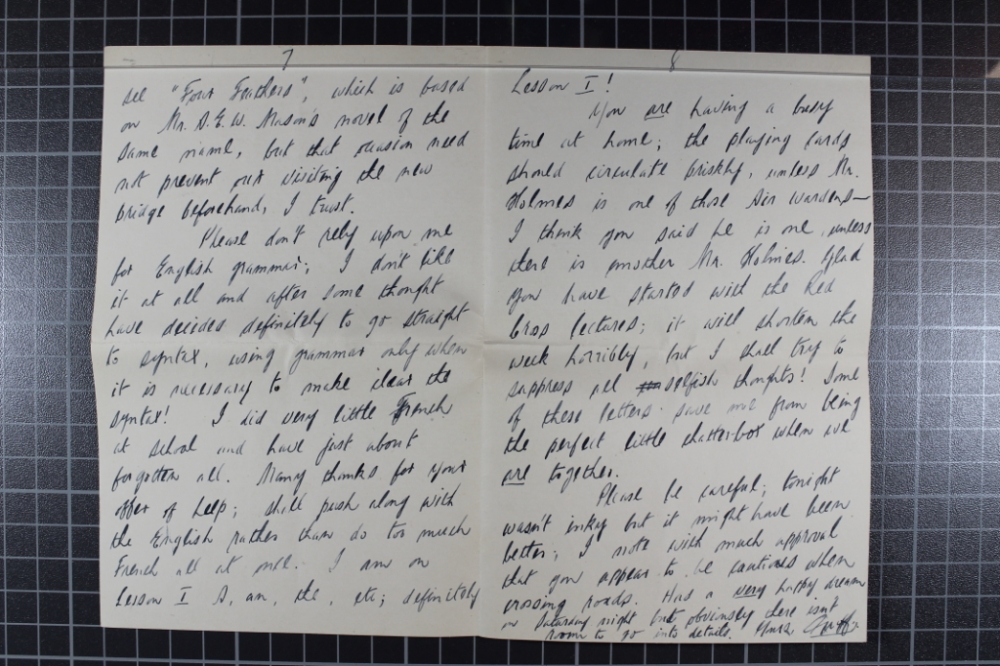 7
see "Four Feathers", which is based
on Mr. A.E.W. Mason's novel of the
same name, but that occasion need
not prevent our visiting the new
bridge beforehand, I trust.
Please don't rely upon me
for English grammar; I don't like
it at all and after some thought
have decided definitely to go straight
to syntax, using grammar only when
it is necessary to make clear the
syntax! I did very little French
at school and have just about
forgotten all. Many thanks for your
offer of help; shall push along with
the English rather than do too much
French all at once. I am on
Lesson I A, an, the, etc; definitely
8
Lesson I!
You are having a busy
time at home; the playing cards
should circulate briskly, unless Mr.
Holmes is one of those Air wardens—
I think you said he is one, unless
there is another Mr. Holmes. Glad
you have started with the Red
Cross lectures; it will shorten the
week horribly, but I shall try to
suppress all selfish thoughts! Some
of these letters save me from being
the perfect little chatterbox when we
are together.
Please be careful; tonight
wasn't inky but it might have been
better; I note with much approval
that you appear to be cautious when
crossing roads. Had a very happy dream
on Saturday night but obviously there isn't
room to go into details.